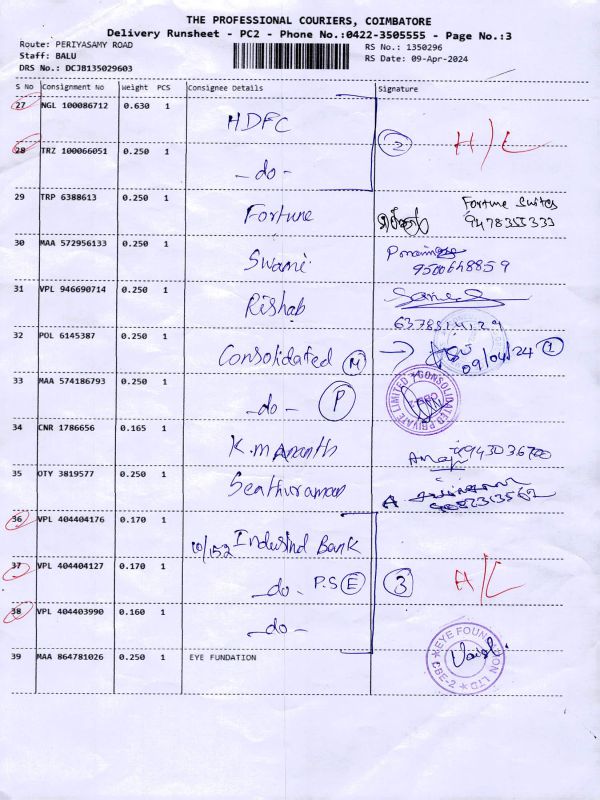 THE PROFESSIONAL COURIERS, COIMBATORE
Delivery Runsheet - PC2 - Phone No.:0422-3505555 - Page No.:3
Route: PERIYASAMY ROAD
RS No.: 1350296
Staff: BALU
RS Date: 09-Apr-2024
DRS No.: DCJB135029603
S No Consignment No Weight PCS Consignee Details Signature
27 NGL 100086712 0.630 1 HDFC
28 TRZ 100066051 0.250 1 - do - 2 H/L
29 TRP 6388613 0.250 1 Fortune Fortune Suites
9478353333
30 MAA 572956133 0.250 1 Swami
9500648859
31 VPL 946690714 0.250 1 Rishab
32 POL 6145387 0.250 1 Consolidated M 09/04/24 1
33 MAA 574186793 0.250 1 - do - P
CONSOLIDATED PRIVATE LIMITED
34 CNR 1786656 0.165 1 K.m Ananth
35 OTY 3819577 0.250 1 Seathuraman
36 VPL 404404176 0.170 1 10/152 Indusind Bank
37 VPL 404404127 0.170 1 - do - P.S E 3 H/L
38 VPL 404403990 0.160 1 - do -
39 MAA 864781026 0.250 1 EYE FUNDATION
EYE FOUNDATION LTD CBE-2